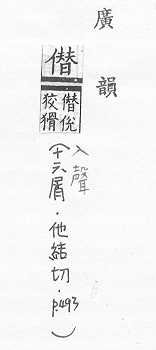 廣韻
僣
僣侻
狡猾
入聲
(十六屑．他結切．p.493)